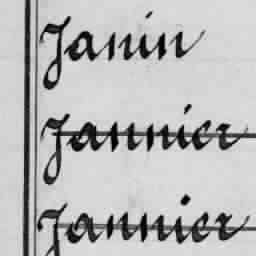 Janin
Jannier
Jannier